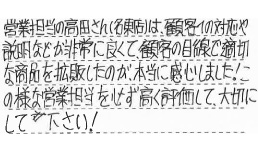 営業担当の高田さん(名東店)は、顧客への対応や
説明などが非常に良くて、顧客の目線で適切
な商品を拡販したのが本当に感心しました!こ
の様な営業担当を必ず高く評価して、大切に
して下さい!